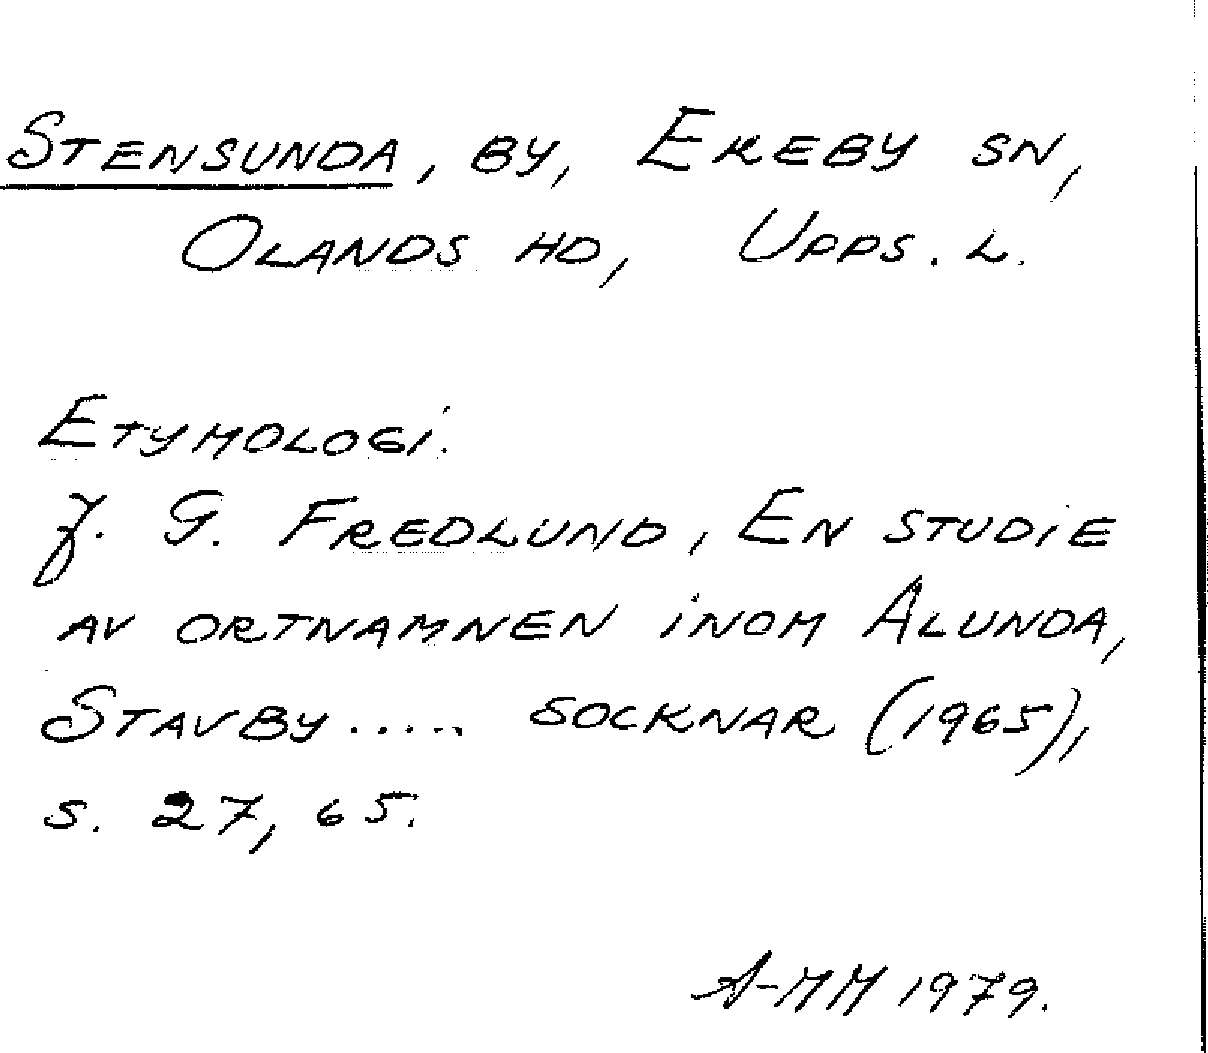 STENSUNDA, BY, EKEBY SN,
OLANDS HD, UPPS. L.
ETYMOLOGI.
J. G. FREDLUND, EN STUDIE
AV ORTNAMNEN INOM ALUNDA,
STAVBY ..... SOCKNAR (1965),
S. 27, 65.
A-MM 1979.